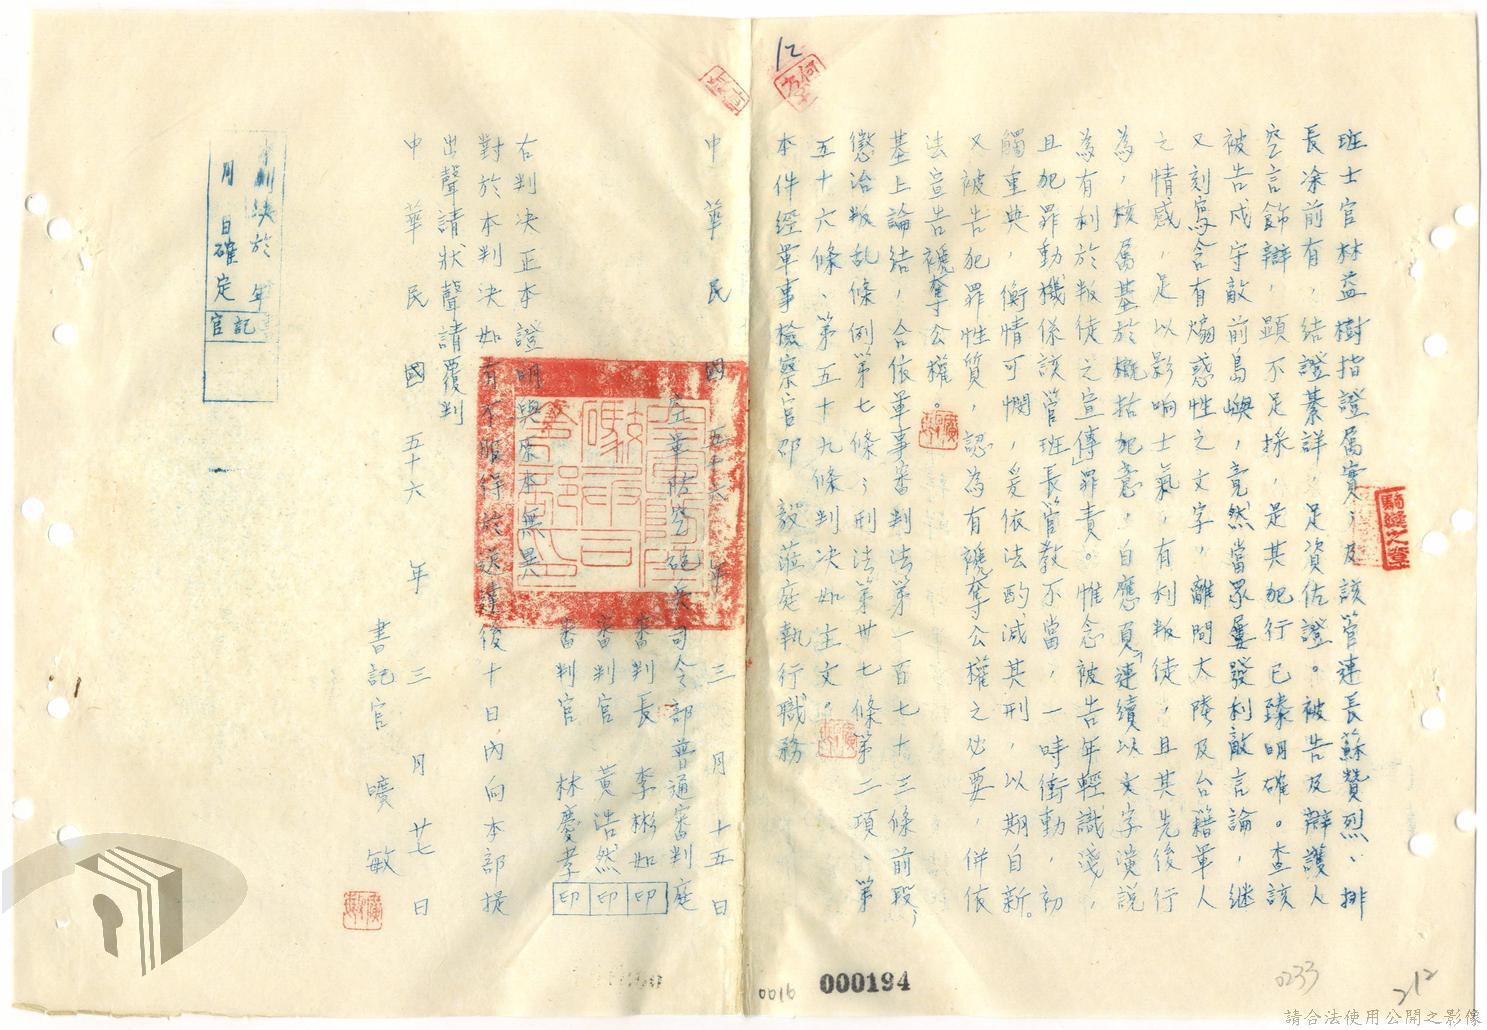 12
班士官林益樹指證屬實，及該管連長蘇贊烈、排
長凃前有，結證綦詳，足資佐證。被告及辯護人
空言飾辯，顯不足採，是其犯行已臻明確。查該
被告戍守敵前島嶼，竟然當眾屢發利敵言論，繼
又刻寫含有煽惑性之文字，離間大陸及台籍軍人
之情感，足以影响士氣，有利叛徒，且其先後行
為，核屬基於概括犯意，自應頁「連續以文字演說
為有利於叛徒之宣傳」罪責。惟念被告年輕識淺，
且犯罪動機係該管班長管教不當，一時衝動，初
觸重典，衡情可憫，爰依法酌減其刑，以期自新。
又被告犯罪性質，認為有褫奪公權之必要，併依
法宣告褫奪公權。
基上論結，合依軍事審判法第一百七十三條前段，
懲治叛乱條例第七條，刑法第卅七條第二項、第
五十六條、第五十九條判決如主文。
本件經軍事檢察官邵 毅蒞庭執行職務
中華民國五十六年三月十五日
空軍防空砲兵司令部普通審判庭
審判長 李彬如 印
審判官 黃浩然 印
審判官 林慶孝 印
右判決正本證明與原本無異
對於本判決如有不服得於送達後十日內向本部提
出聲請狀聲請覆判
中華民國五十六年三月廿七日
書記官 曠 敏
本判決於 年
月 日確定
書記官
騎縫之章
0016
000194
0233
212
請合法使用公開之影像